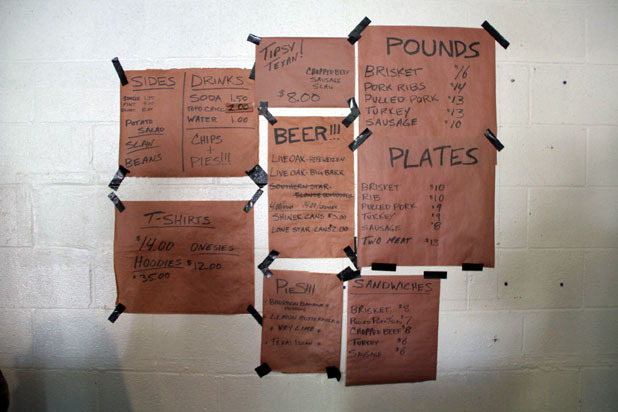 SIDES
POTATO
SALAD
SLAW
BEANS
DRINKS
SODA 1.50
TOPO CHICO 2.00
WATER 1.00
CHIPS
+
PIES!!!
TIPSY
TEXAN!
CHOPPED BEEF
SAUSAGE
SLAW
$8.00
BEER!!!
LIVE OAK-HEFEWEIZEN
LIVE OAK-BIG BARK
SOUTHERN STAR-
SHINER CANS $3.00
LONE STAR CANS $2.00
POUNDS
BRISKET $16
PORK RIBS $14
PULLED PORK $13
TURKEY $13
SAUSAGE $10
PLATES
BRISKET $10
RIB $10
PULLED PORK $9
TURKEY $9
SAUSAGE $8
TWO MEAT $12
T-SHIRTS
$14.00 ONESIES
HOODIES $12.00
$35.00
PIES!!!
BOURBON BANANA
PUDDING
LEMON BUTTERMILK
KEY LIME
TEXAS PECAN
SANDWICHES
BRISKET $8
PULLED PORK $7
CHOPPED BEEF $8
TURKEY $6
SAUSAGE $6